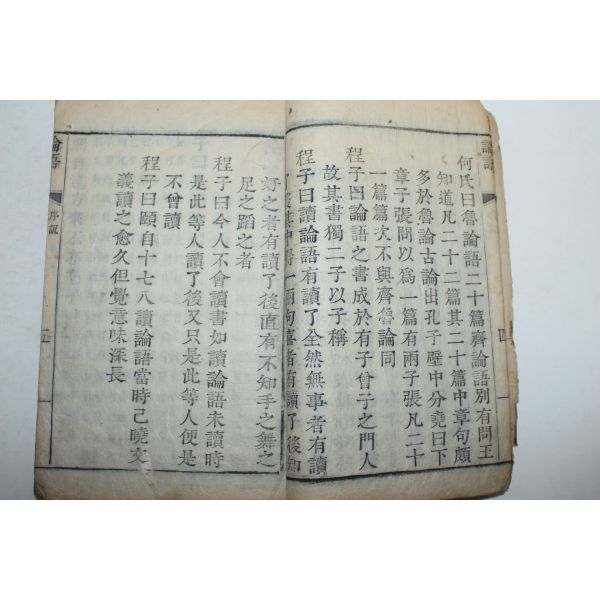 論語
何氏曰魯論語二十篇齊論語別有問王
知道凡二十二篇其二十篇中章句頗
多於魯論古論出孔子壁中分堯曰下
章子張問以爲一篇有兩子張凡二十
一篇篇次不與齊魯論同
程子曰論語之書成於有子曾子之門人
故其書獨二子以子稱
程子曰讀論語有讀了全然無事者有讀
了後其中得一兩句喜者有讀了後知
好之者有讀了後直有不知手之舞之
足之蹈之者
程子曰今人不會讀書如讀論語未讀時
是此等人讀了後又只是此等人便是
不曾讀
程子曰頤自十七八讀論語當時已曉文
義讀之愈久但覺意味深長
論語
序說